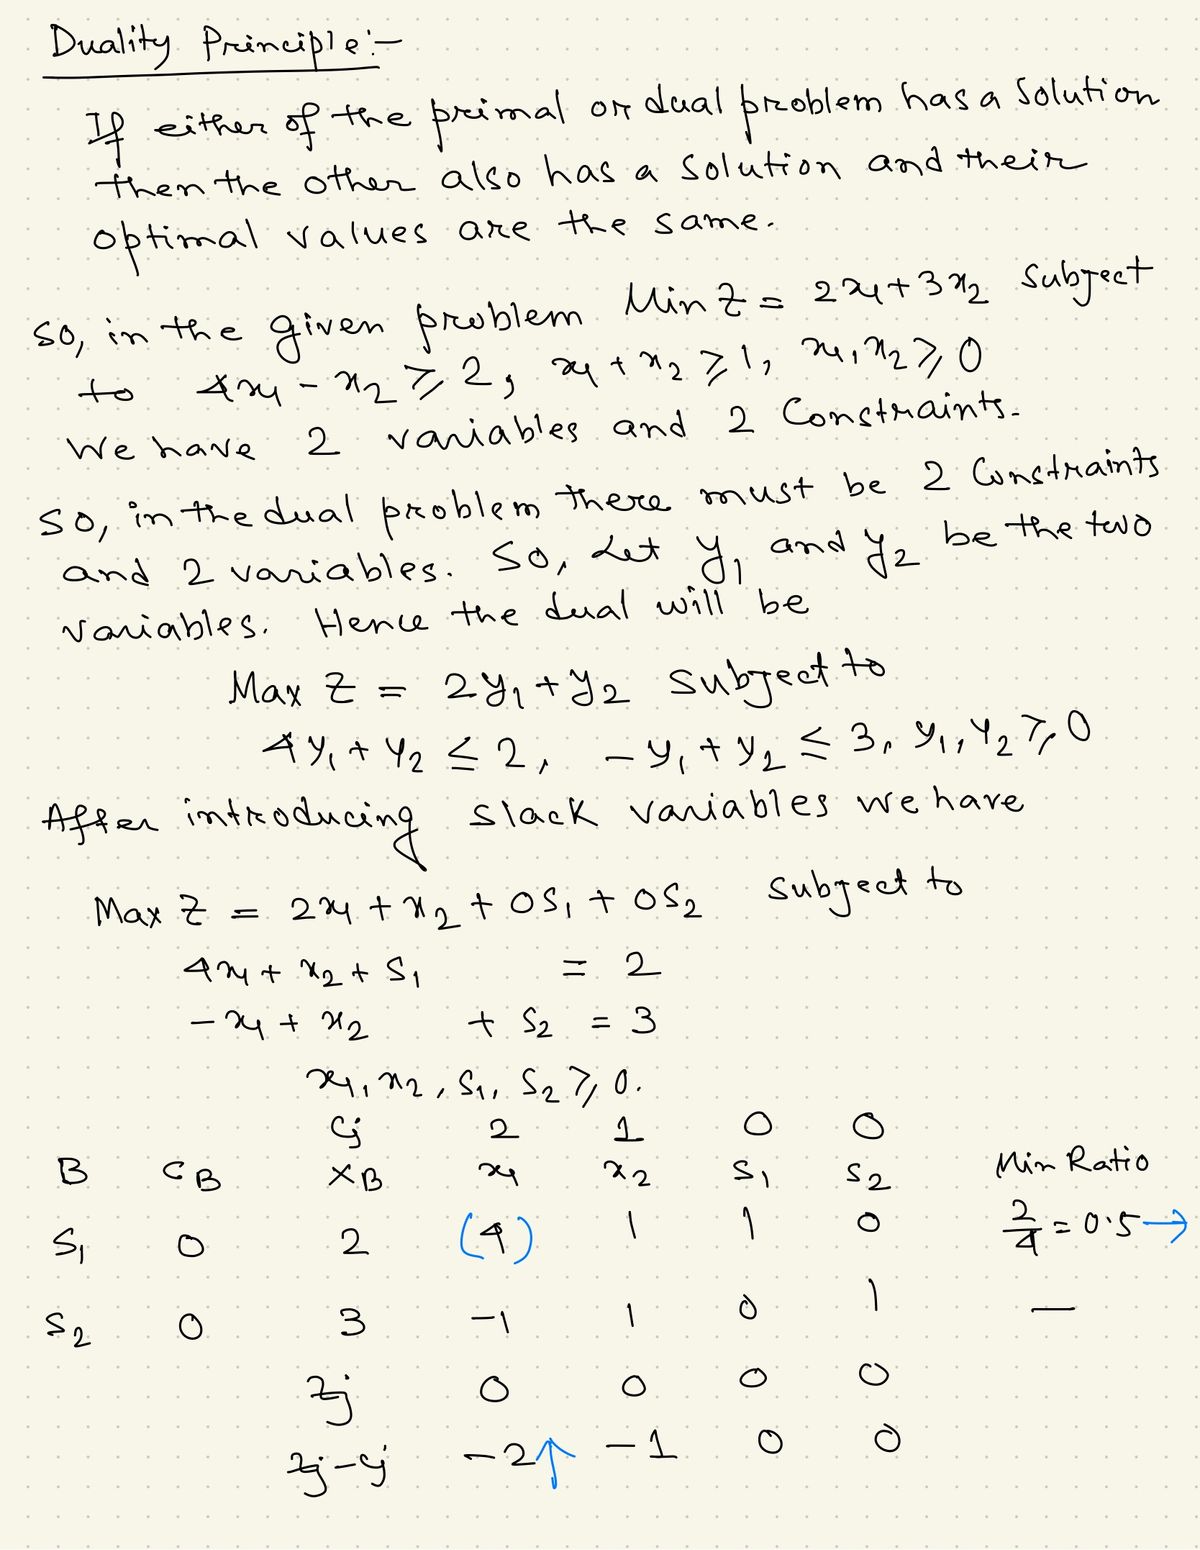 Duality Principle:-
If either of the primal or dual problem has a solution
then the other also has a solution and their
optimal values are the same.
So, in the given problem Min Z = 2x₁ + 3x₂ Subject
to 4x₁ - x₂ ≥ 2, x₁ + x₂ ≥ 1, x₁, x₂ ≥ 0
We have 2 variables and 2 Constraints.
So, in the dual problem there must be 2 Constraints
and 2 variables. So, Let y₁ and y₂ be the two
variables. Hence the dual will be
Max Z = 2y₁ + y₂ Subject to
4y₁ + y₂ ≤ 2, -y₁ + y₂ ≤ 3, y₁, y₂ ≥ 0
After introducing slack variables we have
Max Z = 2x₁ + x₂ + 0S₁ + 0S₂ Subject to
4x₁ + x₂ + S₁ = 2
-x₁ + x₂ + S₂ = 3
x₁, x₂, S₁, S₂ ≥ 0.
Cj 2 1 0 0
B CB XB x₁ x₂ S₁ S₂ Min Ratio
S₁ 0 2 (4) 1 1 0 2/4 = 0.5→
S₂ 0 3 -1 1 0 1 —
Zj 0 0 0 0
Zj-Cj -2↑ -1 0 0